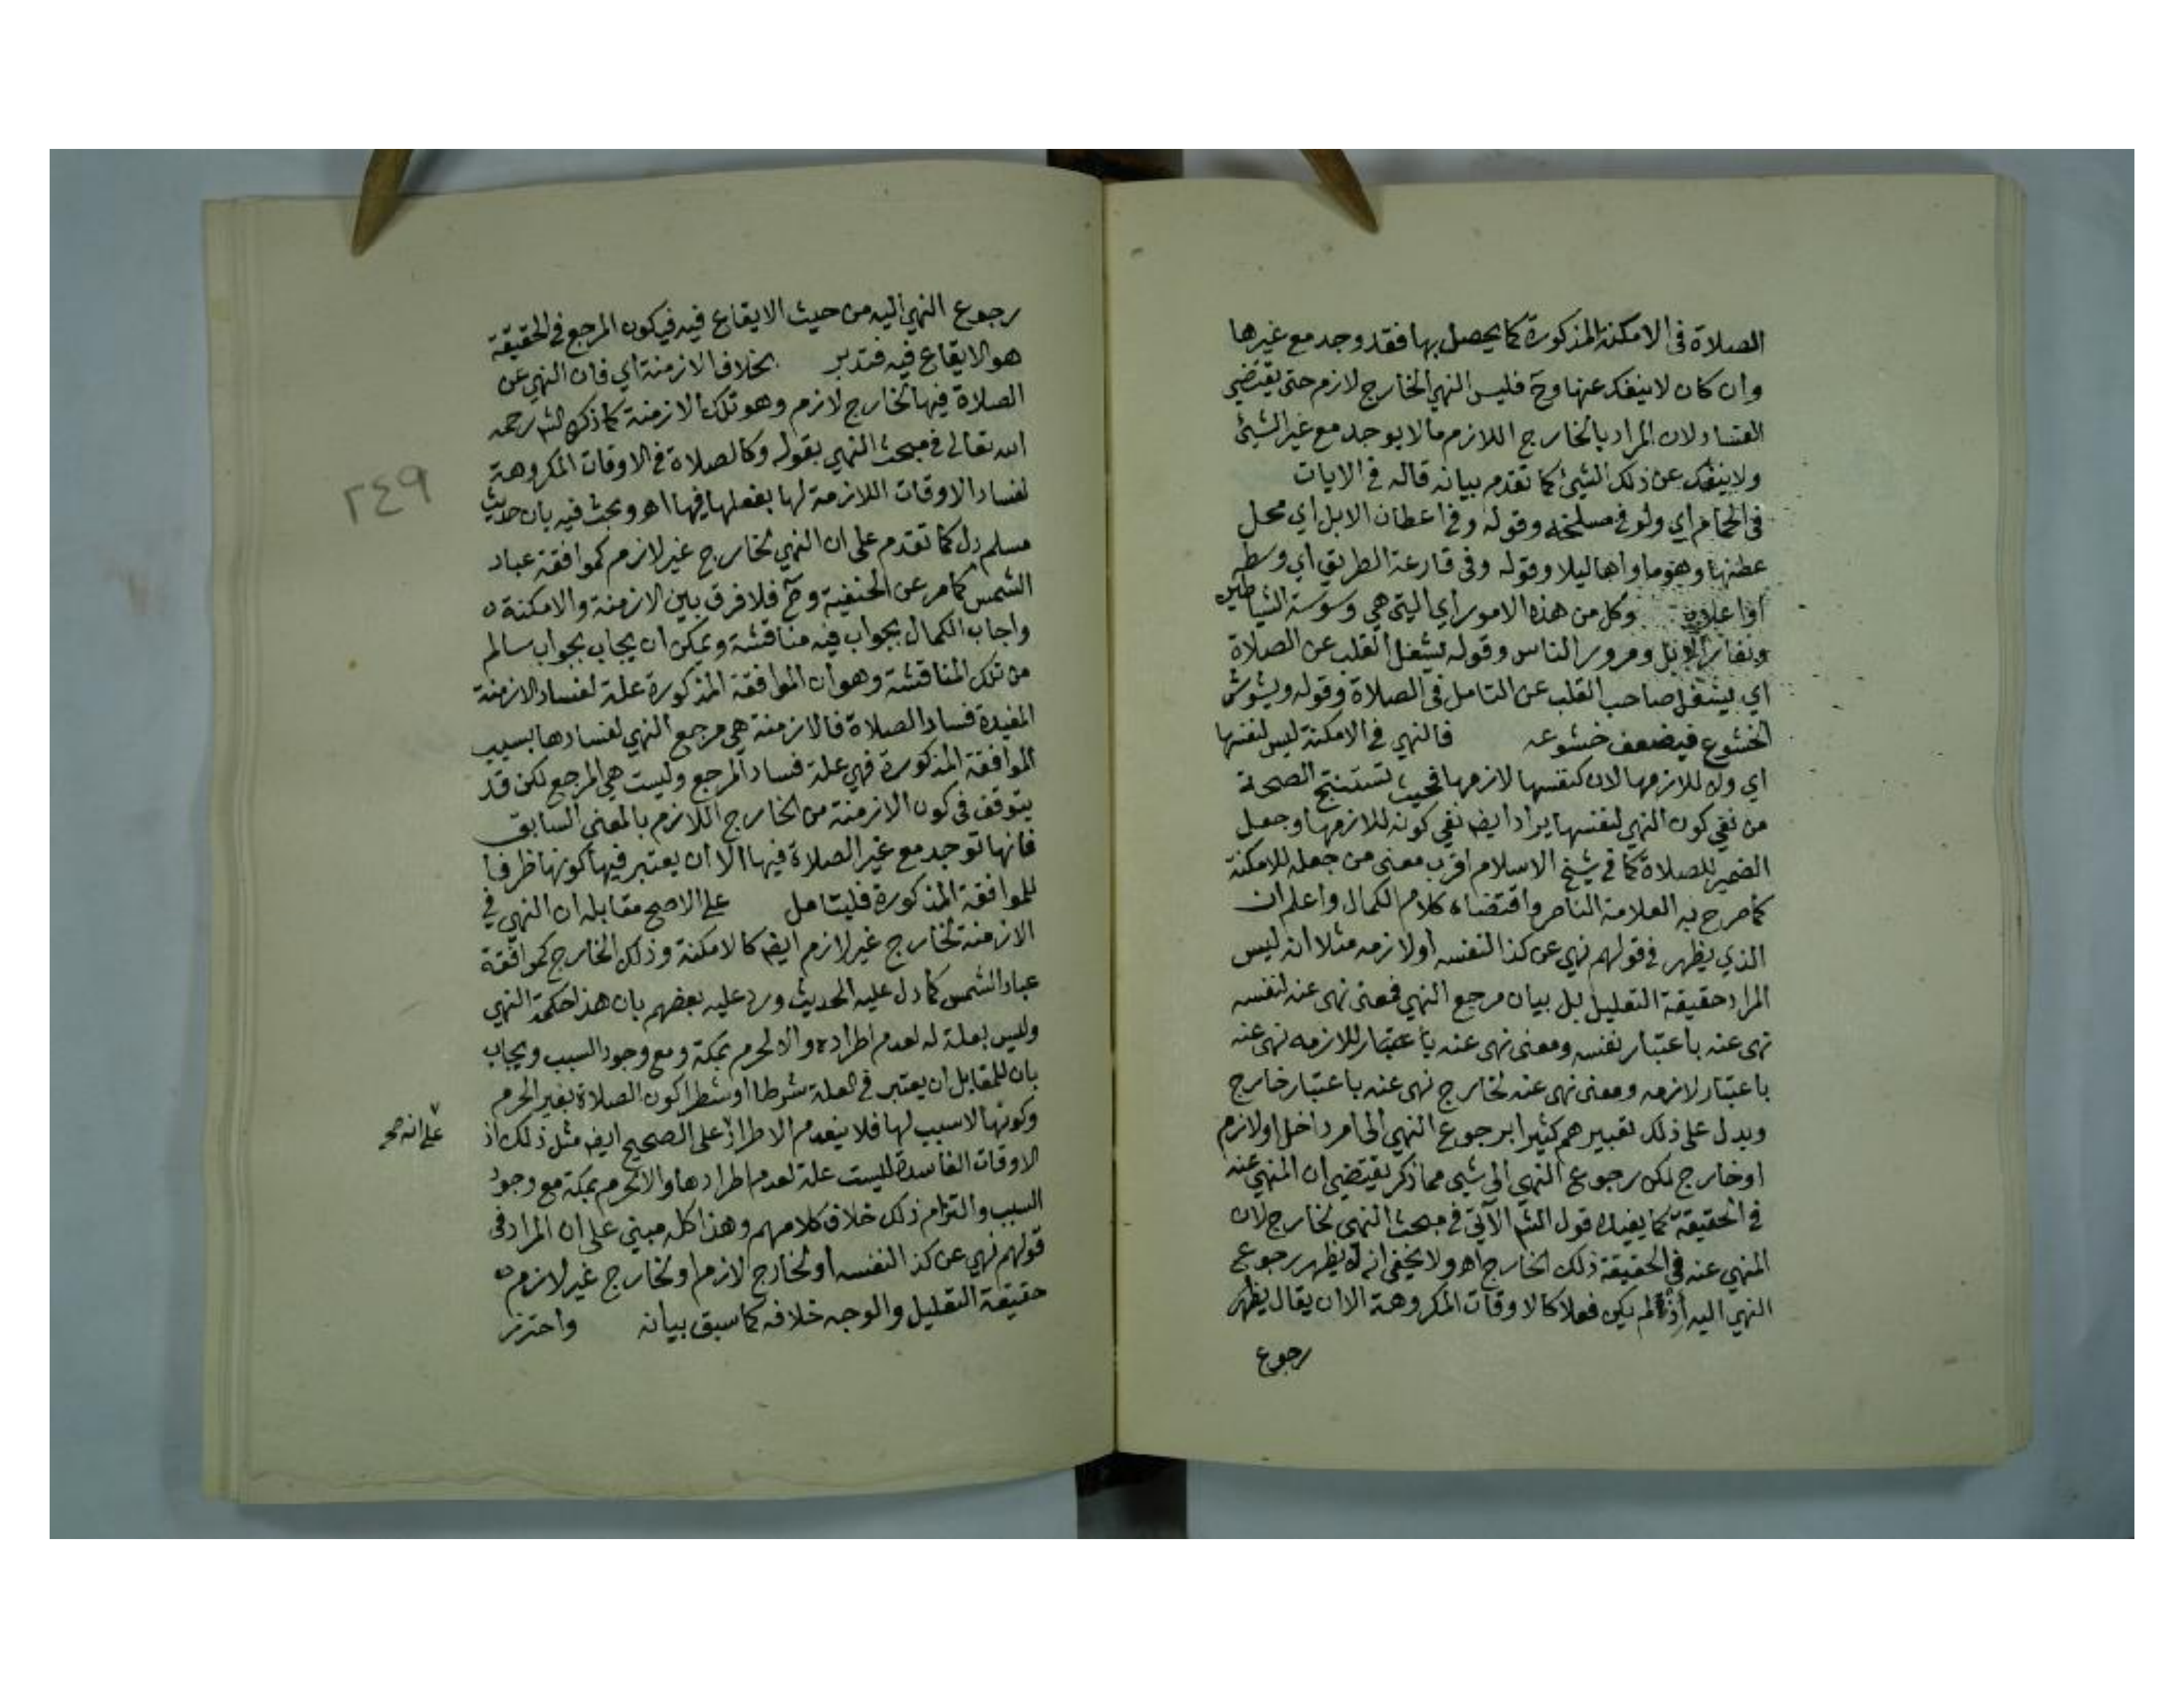 الصلاة في الامكنة المذكورة كما يحصل بها فقد وجد مع غيرها
وان كان لا ينفك عنها وح فليس النهي لخارج لازم حتى يقتضي
الفساد لان المراد بالخارج اللازم ما لا يوجد مع غير الشيئ
ولا ينفك عن ذلك الشيئ كما تقدم بيانه قاله في الايات
في الحمام اي ولو في مسلخه وقوله وفي اعطان الابل اي محل
عطنها وهو ماواها ليلا وقوله وفي قارعة الطريق اي وسطه
او اعلاه وكل من هذه الامور اي التي هي وسوسة الشياطين
ونفار الابل ومرور الناس وقوله تشغل القلب عن الصلاة
اي يشغل صاحب القلب عن التامل في الصلاة وقوله ويشوش
الخشوع فيضعف خشوعه فالنهي في الامكنة ليس لنفسها
اي ولا للازمها لان كنفسها لازمها فحيث تستنتج الصحة
من نفي كون النهي لنفسها يراد ايض نفي كونه للازمها وجعل
الضمير للصلاة كما في شيخ الاسلام اقرب معنى من جعله للامكنة
كما صرح به العلامة الناصر واقتضاه كلام الكمال واعلم ان
الذي يظهر في قولهم نهي عن كذا لنفسه او لازمه مثلا انه ليس
المراد حقيقة التعليل بل بيان مرجع النهي فمعنى نهى عنه لنفسه
نهى عنه باعتبار نفسه ومعنى نهى عنه باعتبار للازمه نهى عنه
باعتبار لازمه ومعنى نهى عنه لخارج نهى عنه باعتبار خارج
ويدل على ذلك تعبيرهم كثيرا برجوع النهي الى امر داخل او لازم
او خارج لكن رجوع النهي الى شيئ مما ذكر يقتضي ان المنهي عنه
في الحقيقة كما يفيده قول الشم الآتي في مبحث النهي لخارج لان
المنهي عنه في الحقيقة ذلك الخارج اه ولا يخفى انه لا يظهر رجوع
النهي اليه اذا لم يكن فعلا كالاوقات المكروهة الا ان يقال يظهر
رجوع
رجوع النهي اليه من حيث الايقاع فيه فيكون المرجع في الحقيقة
هو الايقاع فيه فتدبر بخلاف الازمنة اي فان النهي عن
الصلاة فيها لخارج لازم وهو تلك الازمنة كما ذكره الشم رحمه
الله تعالى في مبحث النهي بقوله وكالصلاة في الاوقات المكروهة
لفساد الاوقات اللازمة لها بفعلها فيها اه وبحث فيه بان حديث
مسلم دل كما تقدم على ان النهي لخارج غير لازم كموافقة عباد
الشمس كما مر عن الحنفية وح فلا فرق بين الازمنة والامكنة ه
واجاب الكمال بجواب فيه مناقشة ويمكن ان يجاب بجواب سالم
من تلك المناقشة وهو ان الموافقة المذكورة علة لفساد الازمنة
المفيدة فساد الصلاة فالازمنة هي مرجع النهي لفسادها بسبب
الموافقة المذكورة فهي علة فساد المرجع وليست هي المرجع لكن قد
يتوقف في كون الازمنة من الخارج اللازم بالمعنى السابق
فانها توجد مع غير الصلاة فيها الا ان يعتبر فيها كونها ظرفا
للموافقة المذكورة فليتامل على الاصح مقابله ان النهي في
الازمنة لخارج غير لازم ايض كالامكنة وذلك الخارج كموافقة
عباد الشمس كما دل عليه الحديث ورد عليه بعضهم بان هذا حكمة النهي
وليس بعلة له لعدم اطراده والا لحرم بمكة ومع وجود السبب ويجاب
بان للمقابل ان يعتبر في العلة شرطا او شطرا كون الصلاة بغير الحرم
وكونها لا سبب لها فلا ينعدم الاطراد على الصحيح ايض مثل ذلك اذ
الاوقات الفاسدة ليست علة لعدم اطرادها والا لحرم بمكة مع وجود
السبب والتزام ذلك خلاف كلامهم وهذا كله مبني على ان المراد في
قولهم نهي عن كذا لنفسه او لخارج لازم او لخارج غير لازم ه
حقيقة التعليل والوجه خلافه كما سبق بيانه واحترز
٢٤٩
على انه صح